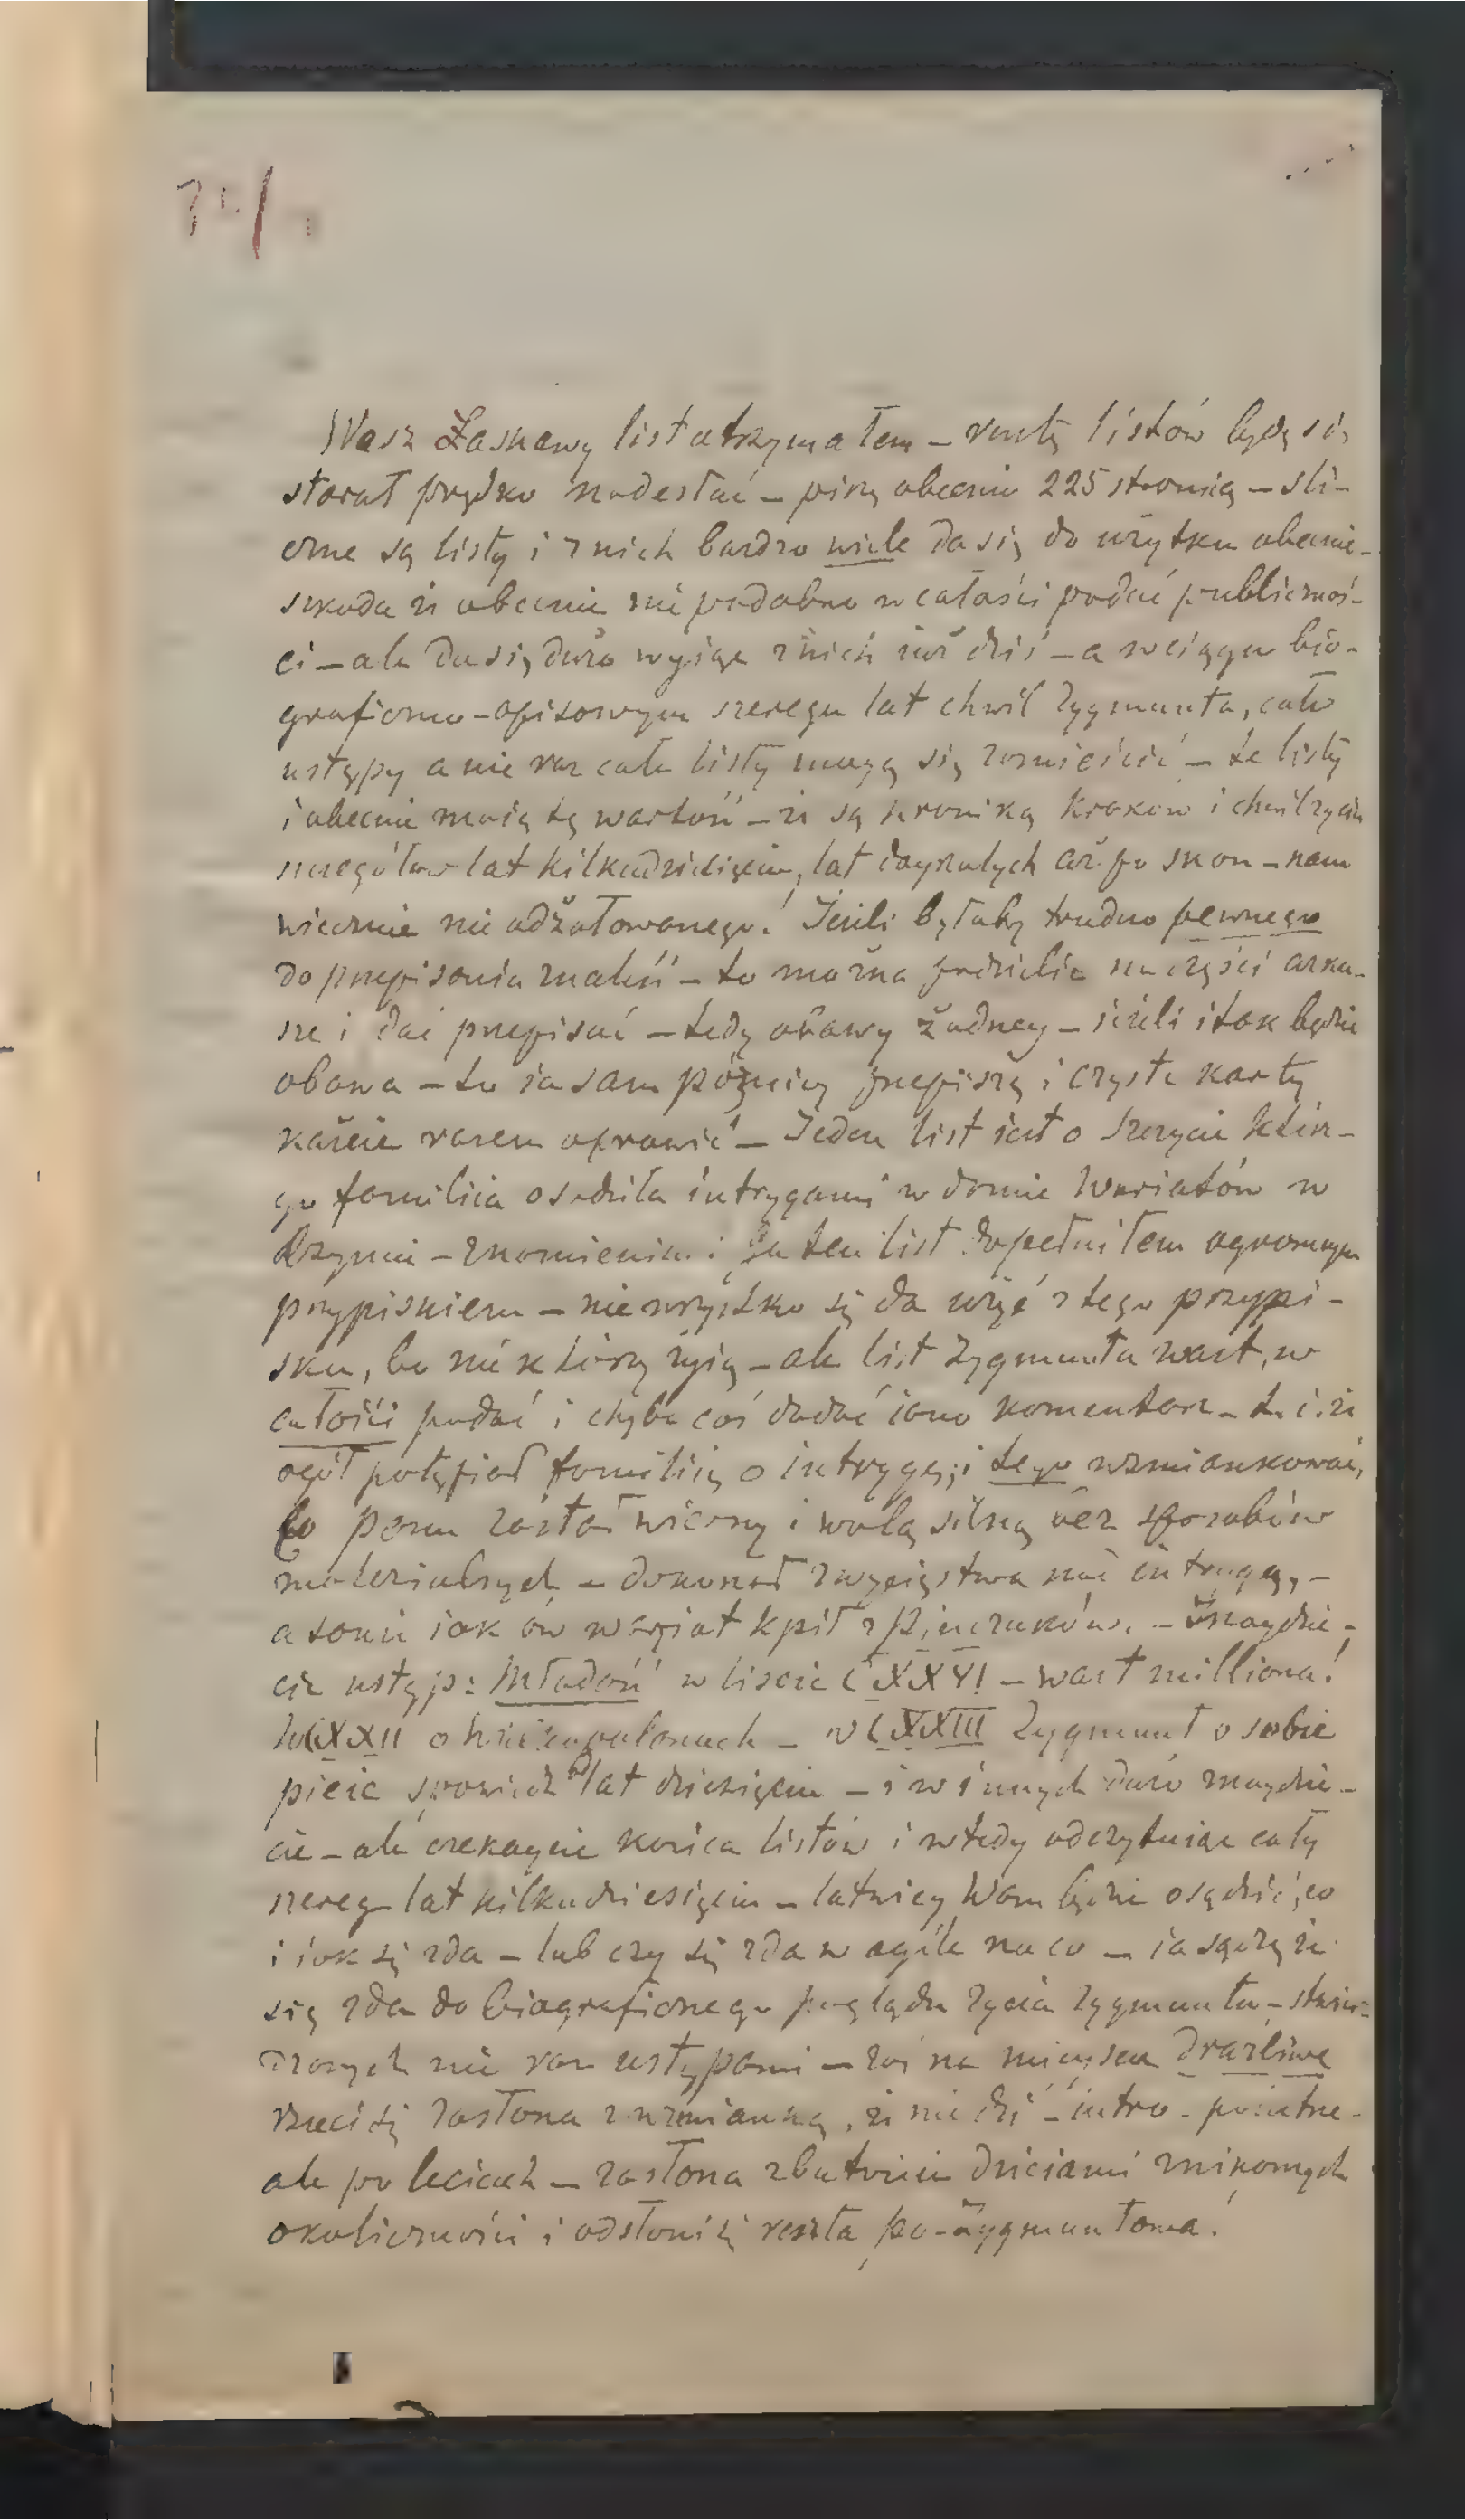 Wasz Łaskawy list otrzymałem – resztę listów będę się
starał prędko nadesłać – piszę obecnie 225 stronicę – śli-
czne są listy i z nich bardzo wiele da się do użytku obecnie –
szkoda że obecnie nie podobna w całości podać publicznoś-
ci – ale da się dużo wyjąć z nich już dziś – a w ciągu bio-
graficzno-opisowym szeregu lat chwil Zygmunta, całe
ustępy a nie raz całe listy mogą się zamieścić – te listy
i obecnie mają tę wartość – że są kroniką kroków i chwil życia
szczegółów lat kilkudziesięciu, lat dojrzałych aż po skon – nam
wiecznie nie odżałowanego! Jeżeli byłaby trudno pewnego
do przepisania znaleść – to można podzielić na części arku-
sze i dać przepisać – tedy obawy żadnej – jeżeli i tak będzie
obawa – to ja sam późniey przepiszę i czyste karty
każcie razem oprawić – Jeden list jest o Szczycie któr-
go familia osadziła intrygami w domie Wariatów w
Rzymie – znamienia: ja ten list dopełniłem ogromnym
przypiskiem – nie wszystko się da użyć z tego przypi-
sku, bo nie którzy żyją – ale list Zygmunta wart, w
całości podać i chyba coś dodać jako komentarz – t. i. że
ogół potępiał familię o intrygę; i tego wzmiankować,
bo Panu został wierny i wolą silną bez sposobów
materialnych – dokonał zwycięstwa nad intrygą, –
a sam jak ów waryat kpił z Pinczuków. – Znaydzie-
cie ustęp: Młodość w liscie CXXVI – wart milliona!
W CXXII o – w CXXIII Zygmunt o sobie
pisze spowiedź lat dziesięciu – i w innych dużo znaydzie-
cie – ale czekaycie końca listów i wtedy odczytując cały
szereg lat kilkudziesięciu – łatwiey Wam będzie osądzić, co
i jak się zda – lub czy się zda w ogóle na co – ja sądzę że
się zda do biograficznego poglądu życia Zygmunta –
nie raz ustępami – zaś na mieysca drażliwe
rzuci się zasłona z wzmianką, że nie dziś – jutro – pojutrze –
ale po leciech – zasłona zbutwieje dziejami znikomych
okoliczności i odsłoni się reszta po-Zygmuntowa.